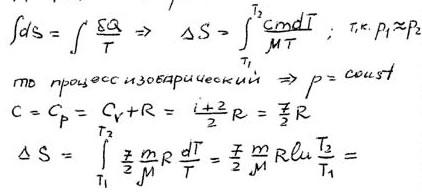 ∫dS = ∫ δQ/T => ΔS = ∫_{T₁}^{T₂} cmdT/MT ; т.к. p₁≈p₂
то процесс изобарический => p = const
C = C_p = C_v + R = (i+2)/2 R = 7/2 R
ΔS = ∫_{T₁}^{T₂} 7/2 m/M R dT/T = 7/2 m/M R ln T₂/T₁ =